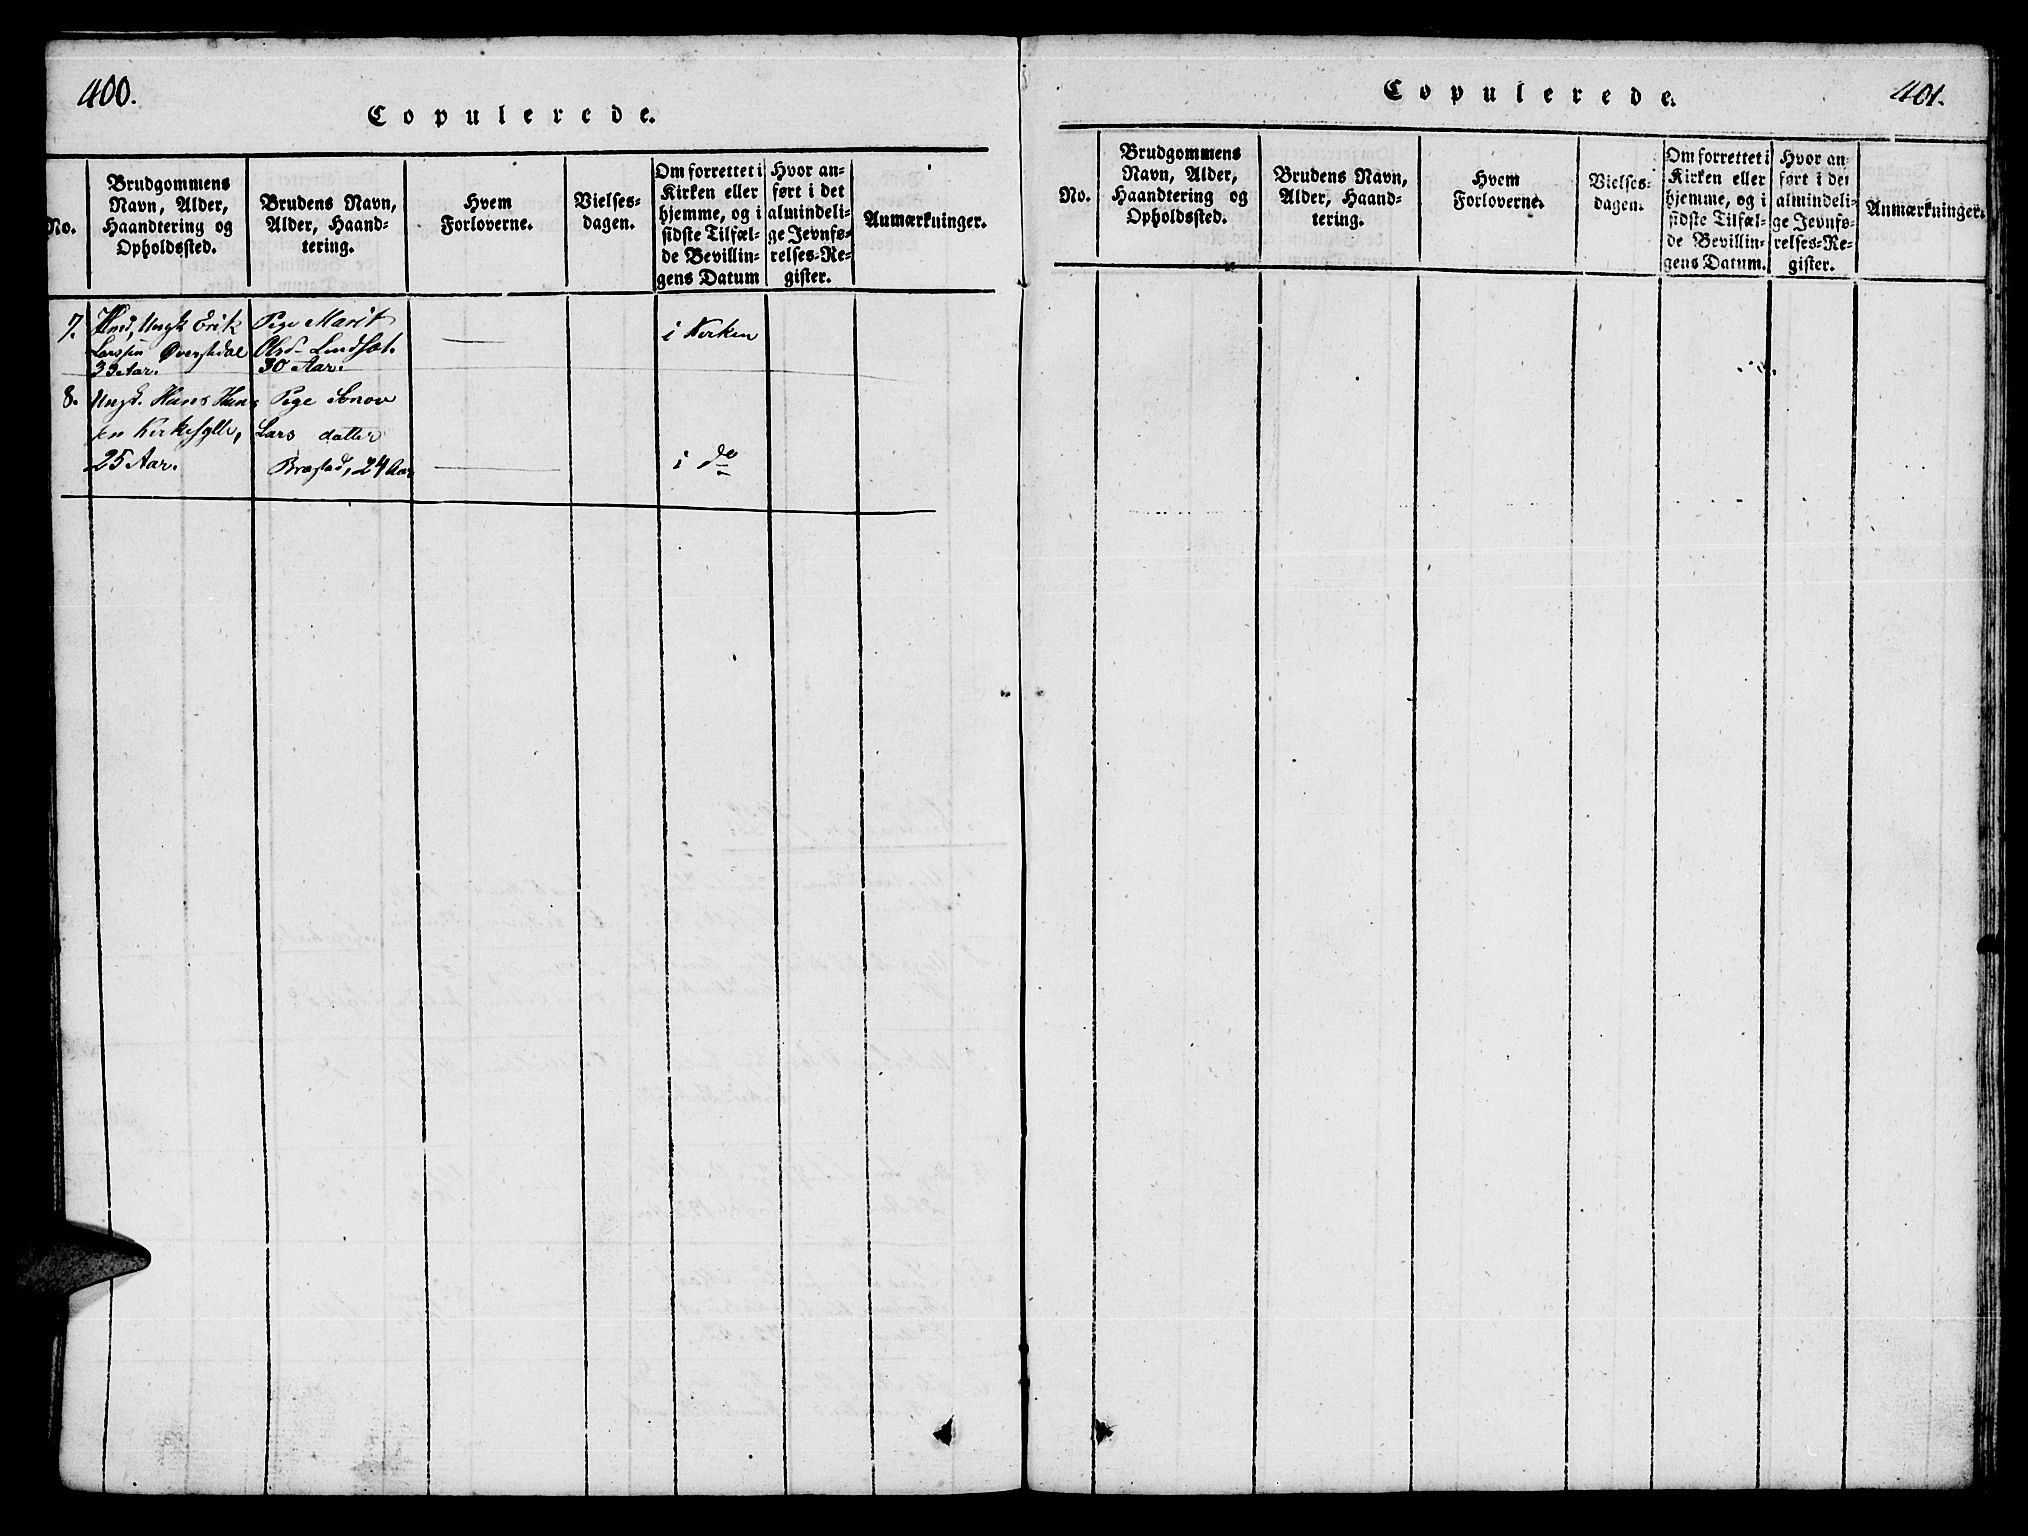 400.
Copulerede.
No.
Brudgommens
Navn, Alder,
Haandtering og
Opholdssted.
Brudens Navn,
Alder, Haand-
tering.
Hvem
Forloverne.
Vielses-
dagen.
Om forrettet i
Kirken eller
hjemme, og i
sidste Tilfæl-
de Bevillin-
gens Datum
Hvor an-
ført i det
almindeli-
ge Jevnfø-
relses-Re-
gister.
Anmærkninger.
7.
Ungk Erik
Larssen Øverstedal
33 Aar.
Pige Marit
Olsd. Lindset.
30 Aar.
i Kirken
8.
Ungk. Hans Han
sen Kirkesylle,
25 Aar.
Pige Sonov
Lars datter
Brastad, 24 Aar
i do
401.
Copulerede.
No.
Brudgommens
Navn, Alder,
Haandtering og
Opholdssted.
Brudens Navn,
Alder, Haand-
tering.
Hvem
Forloverne.
Vielses-
dagen.
Om forrettet i
Kirken eller
hjemme, og i
sidste Tilfæl-
de Bevillin-
gens Datum.
Hvor an-
ført i det
almindeli-
ge Jevnfø-
relses-Re-
gister.
Anmærkninger.